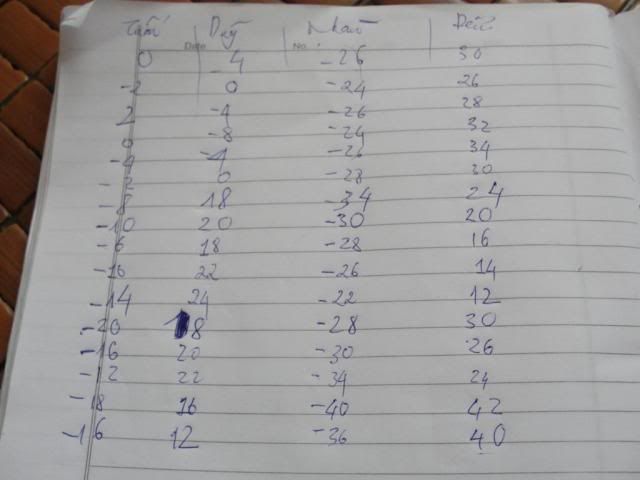 Duy Nhan
Date No.
0 -4 -26 30
-2 0 -24 26
2 -4 -26 28
0 -8 -24 32
-4 -26 34
0 -28 30
-8 18 -34 24
-10 20 -30 20
-6 18 -28 16
-16 22 -26 14
-14 24 -22 12
-20 18 -28 30
-16 20 -30 26
-12 22 -34 24
-18 16 -40 42
-16 12 -36 40